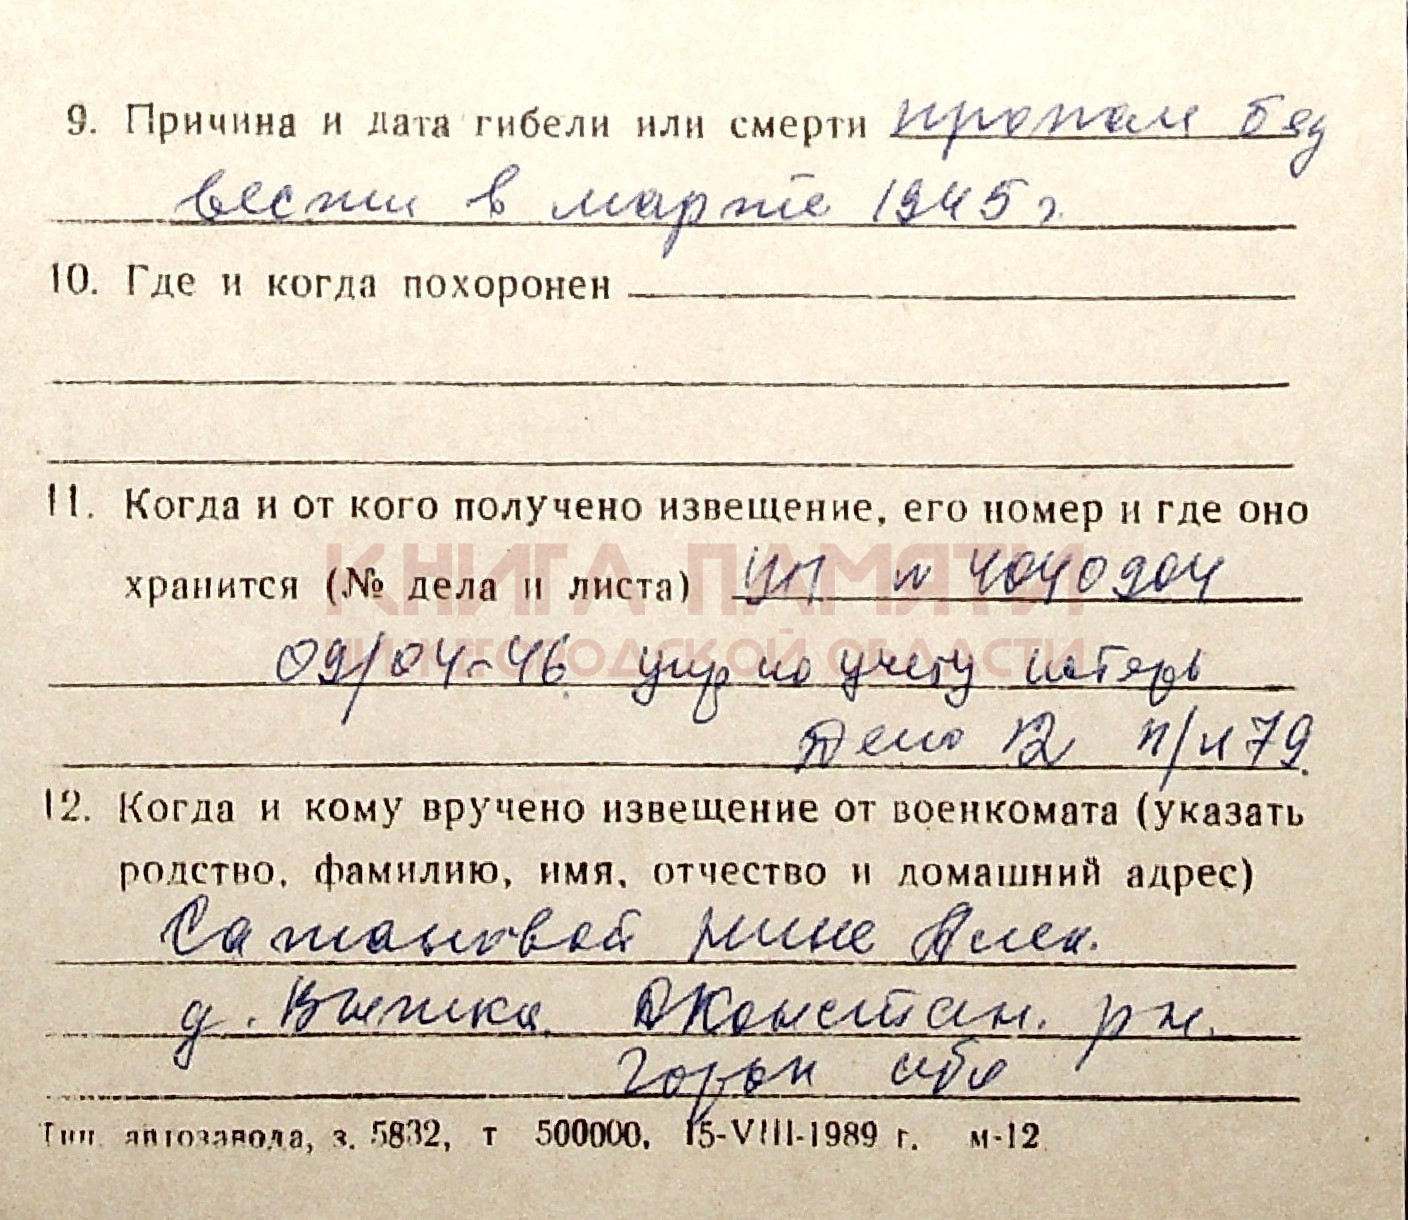 9. Причина и дата гибели или смерти пропал без
вести в марте 1945 г.
10. Где и когда похоронен
11. Когда и от кого получено извещение, его номер и где оно
КНИГА ПАМЯТИ
хранится (№ дела и листа) УП № 4040904
НИЖЕГОРОДСКОЙ ОБЛАСТИ
09/04-46 упр по учету потерь
Дело 12 п/н 79.
12. Когда и кому вручено извещение от военкомата (указать
родство, фамилию, имя, отчество и домашний адрес)
Алек.
д. Константин. р-н.
Горьк обл
Тип. автозавода, з. 5832, т 500000, 15-VIII-1989 г. м-12